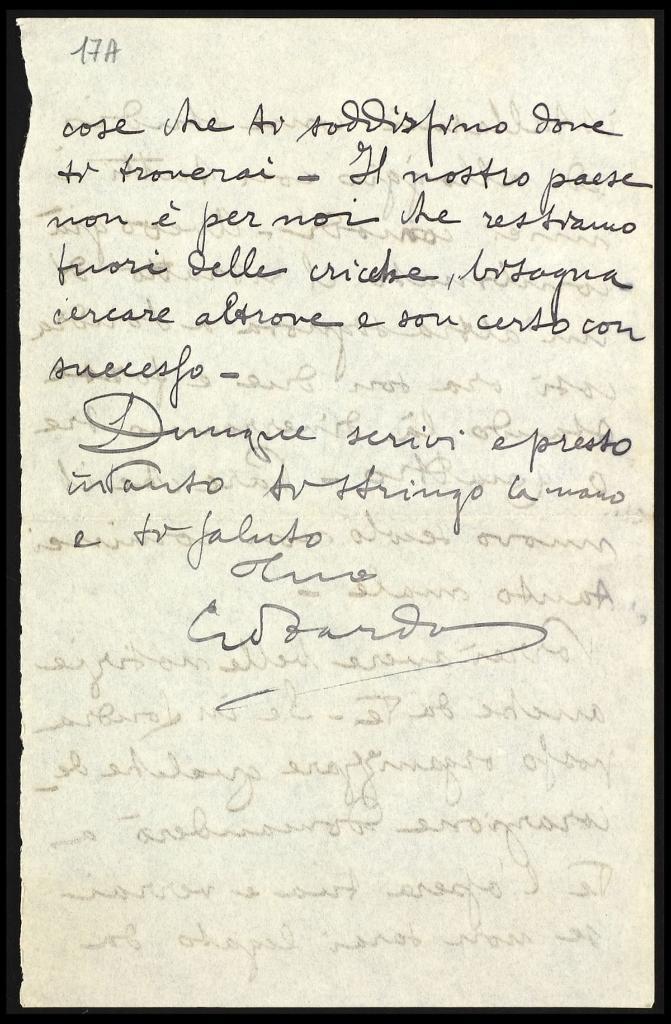 17A
cose che ti soddisfino dove
ti troverai - Il nostro paese
non è per noi che restiamo
fuori delle cricche, bisogna
cercare altrove e son certo con
successo -
Dunque scrivi e presto
intanto ti stringo la mano
e ti saluto
tuo
Edoardo